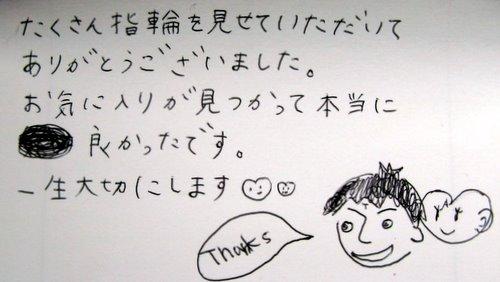 たくさん指輪を見せていただいて
ありがとうございました。
お気に入りが見つかって本当に
良かったです。
一生大切にします
Thanks